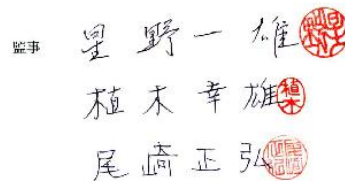 監事 星野一雄
植木幸雄 植木
尾崎正弘